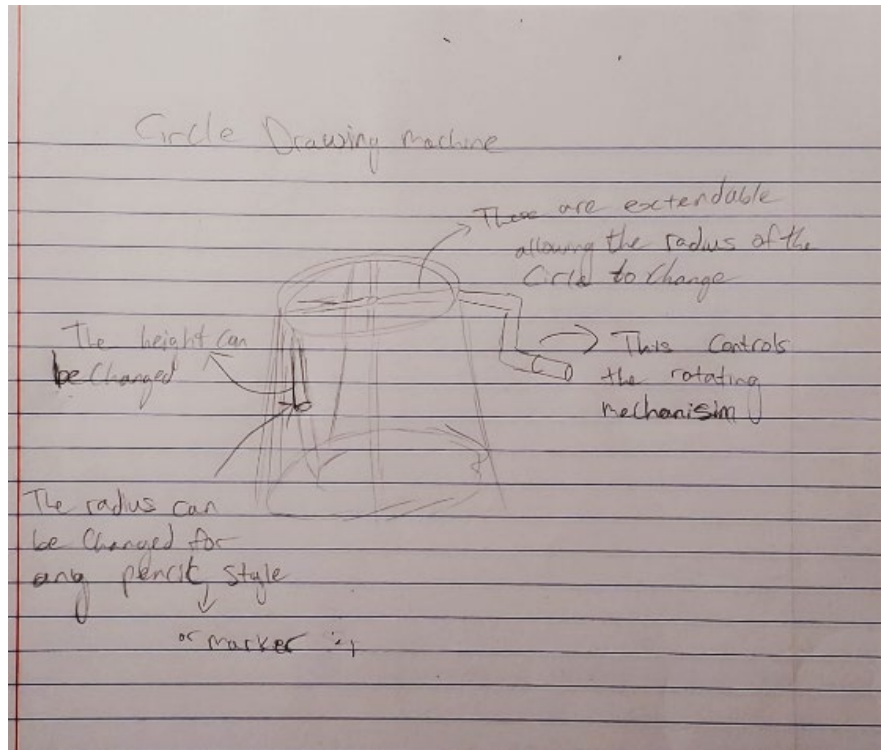 Circle Drawing machine
These are extendable
allowing the radius of the
Circle to Change
The height can
be Changed
This Controls
the rotating
mechanisim
The radius can
be Changed for
any pencil style
or marker